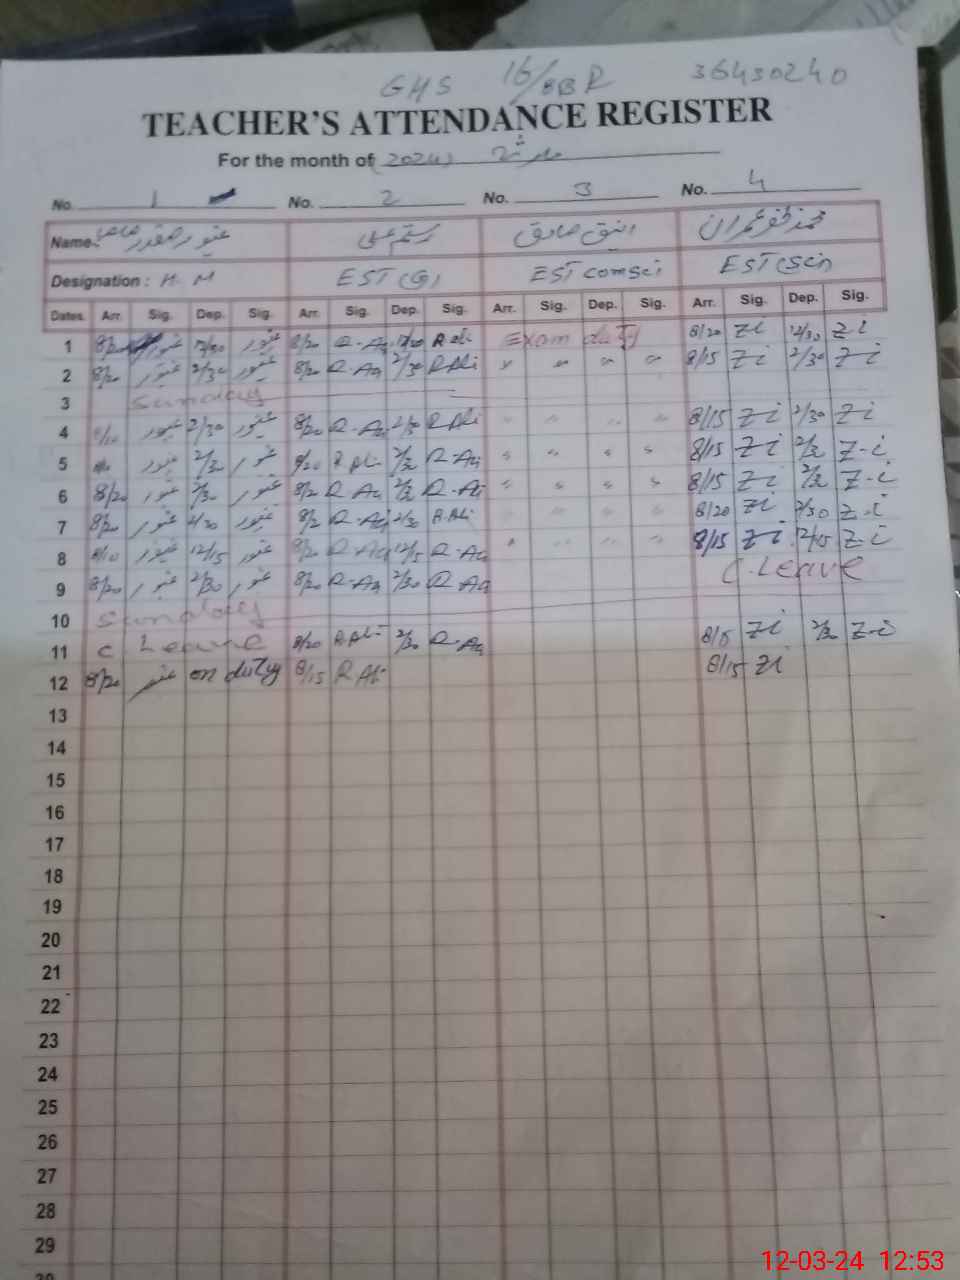 GHS 16/8BR 36430240
TEACHER'S ATTENDANCE REGISTER
For the month of (2024) مارچ
No. 1 No. 2 No. 3 No. 4
Name: رستم علی صادق محمد ظفر عمران
Designation: H. M EST (G) EST comSci EST (Sci)
Dates. Arr. Sig. Dep. Sig. Arr. Sig. Dep. Sig. Arr. Sig. Dep. Sig. Arr. Sig. Dep. Sig.
1 8/20 12/30 8/20 R-Aa 12/30 R Ali Exam duty 8/20 Zi 12/30 Z-i
2 8/20 2/30 8/20 R-Aa 2/30 R Ali " " " " 8/15 Zi 2/30 Z-i
3 Sunday
4 2/30 8/20 R-Aa 2/30 R Ali " " " " 8/15 Zi 2/30 Zi
5 2/30 8/20 R Ali 2/30 R-Aa " " " " 8/15 Zi 2/30 Z-i
6 8/20 2/30 8/20 R Aa 2/30 R-Ali " " " " 8/15 Zi 2/30 Z-i
7 8/20 2/30 8/20 R-Aa 2/30 R.Ali 8/20 Zi 2/30 Z-i
8 8/10 12/15 8/20 R-Aa 12/15 R-Aa " " " " 8/15 Zi 12/15 Z-i
9 8/20 2/30 8/20 R-Aa 2/30 R-Aa C-Leave
10 Sunday
11 C Leave 8/20 R.Ali 2/30 R-Aa 8/15 Zi 2/30 Z-i
12 8/20 on duty 8/15 R Ali 8/15 Zi
13
14
15
16
17
18
19
20
21
22
23
24
25
26
27
28
29
30
12-03-24 12:53